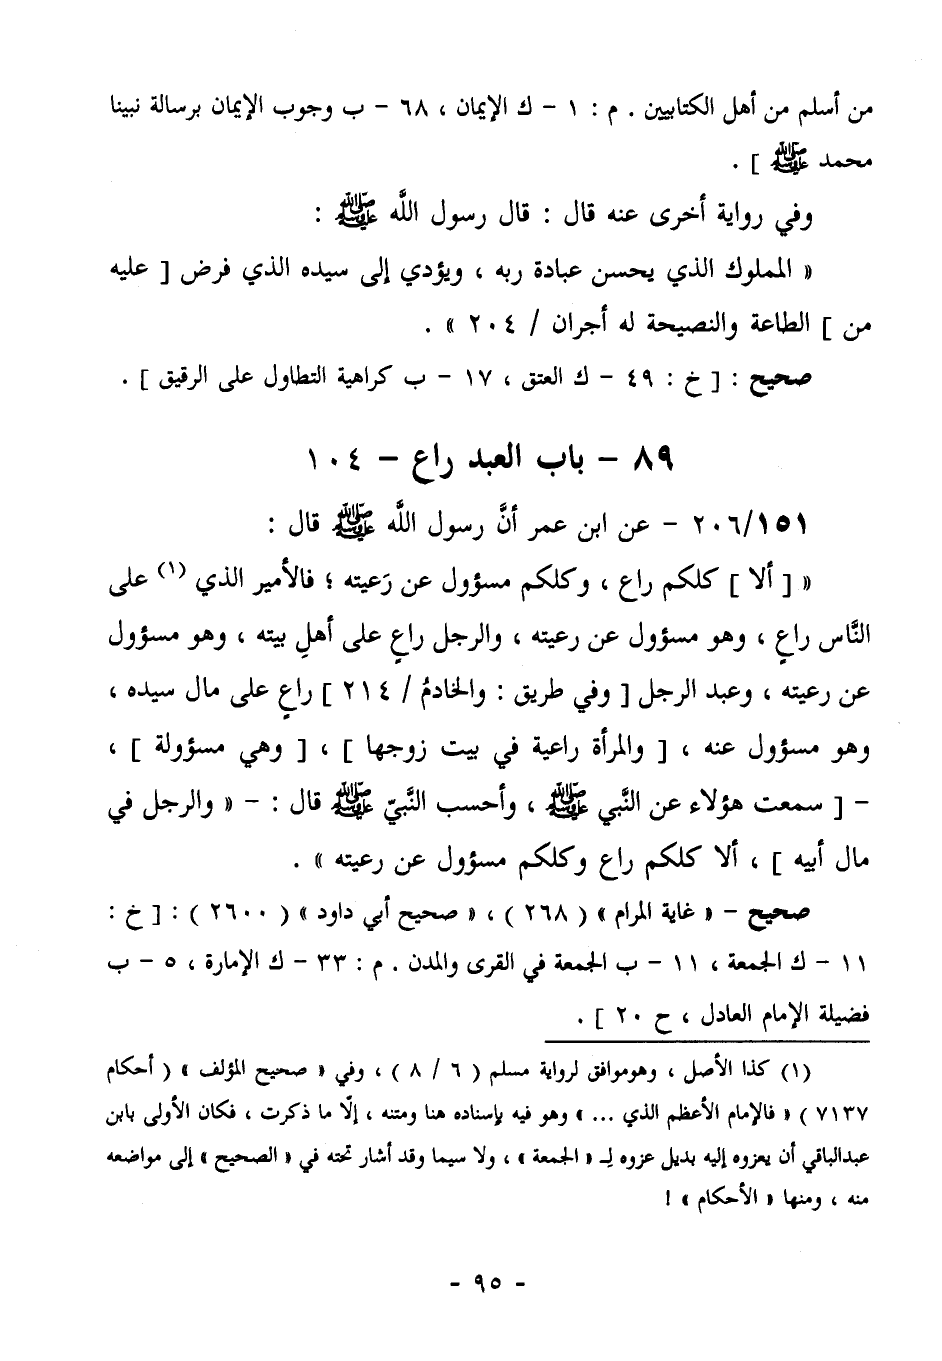 من أسلم من أهل الكتابيين . م : ١ – ك الإيمان ، ٦٨ – ب وجوب الإيمان برسالة نبينا
محمد ﷺ ] .
وفي رواية أخرى عنه قال : قال رسول اللَّه ﷺ :
« المملوك الذي يحسن عبادة ربه ، ويؤدي إلى سيده الذي فرض [ عليه
من ] الطاعة والنصيحة له أجران / ٢٠٤ » .
صحيح : [ خ : ٤٩ – ك العتق ، ١٧ – ب كراهية التطاول على الرقيق ] .
٨٩ – باب العبد راع – ١٠٤
٢٠٦/١٥١ – عن ابن عمر أنَّ رسول اللَّه ﷺ قال :
« [ ألا ] كلكم راع ، وكلكم مسؤول عن رَعيته ؛ فالأمير الذي (١) على
النَّاس راعٍ ، وهو مسؤول عن رعيته ، والرجل راعٍ على أهلِ بيته ، وهو مسؤول
عن رعيته ، وعبد الرجل [ وفي طريق : والخادمُ / ٢١٤ ] راعٍ على مال سيده ،
وهو مسؤول عنه ، [ والمرأة راعية في بيت زوجها ] ، [ وهي مسؤولة ] ،
– [ سمعت هؤلاء عن النَّبي ﷺ ، وأحسب النَّبيّ ﷺ قال : – « والرجل في
مال أبيه ] ، ألا كلكم راع وكلكم مسؤول عن رعيته » .
صحيح – « غاية المرام » ( ٢٦٨ ) ، « صحيح أبي داود » ( ٢٦٠٠ ) : [ خ :
١١ – ك الجمعة ، ١١ – ب الجمعة في القرى والمدن . م : ٣٣ – ك الإمارة ، ٥ – ب
فضيلة الإمام العادل ، ح ٢٠ ] .
(١) كذا الأصل ، وهوموافق لرواية مسلم ( ٦ / ٨ ) ، وفي « صحيح المؤلف » ( أحكام
٧١٣٧ ) « فالإمام الأعظم الذي ... » وهو فيه بإسناده هنا ومتنه ، إلّا ما ذكرت ، فكان الأولى بابن
عبدالباقي أن يعزوه إليه بديل عزوه لِـ « الجمعة » ، ولا سيما وقد أشار تحته في « الصحيح » إلى مواضعه
منه ، ومنها « الأحكام » !
- ٩٥ -